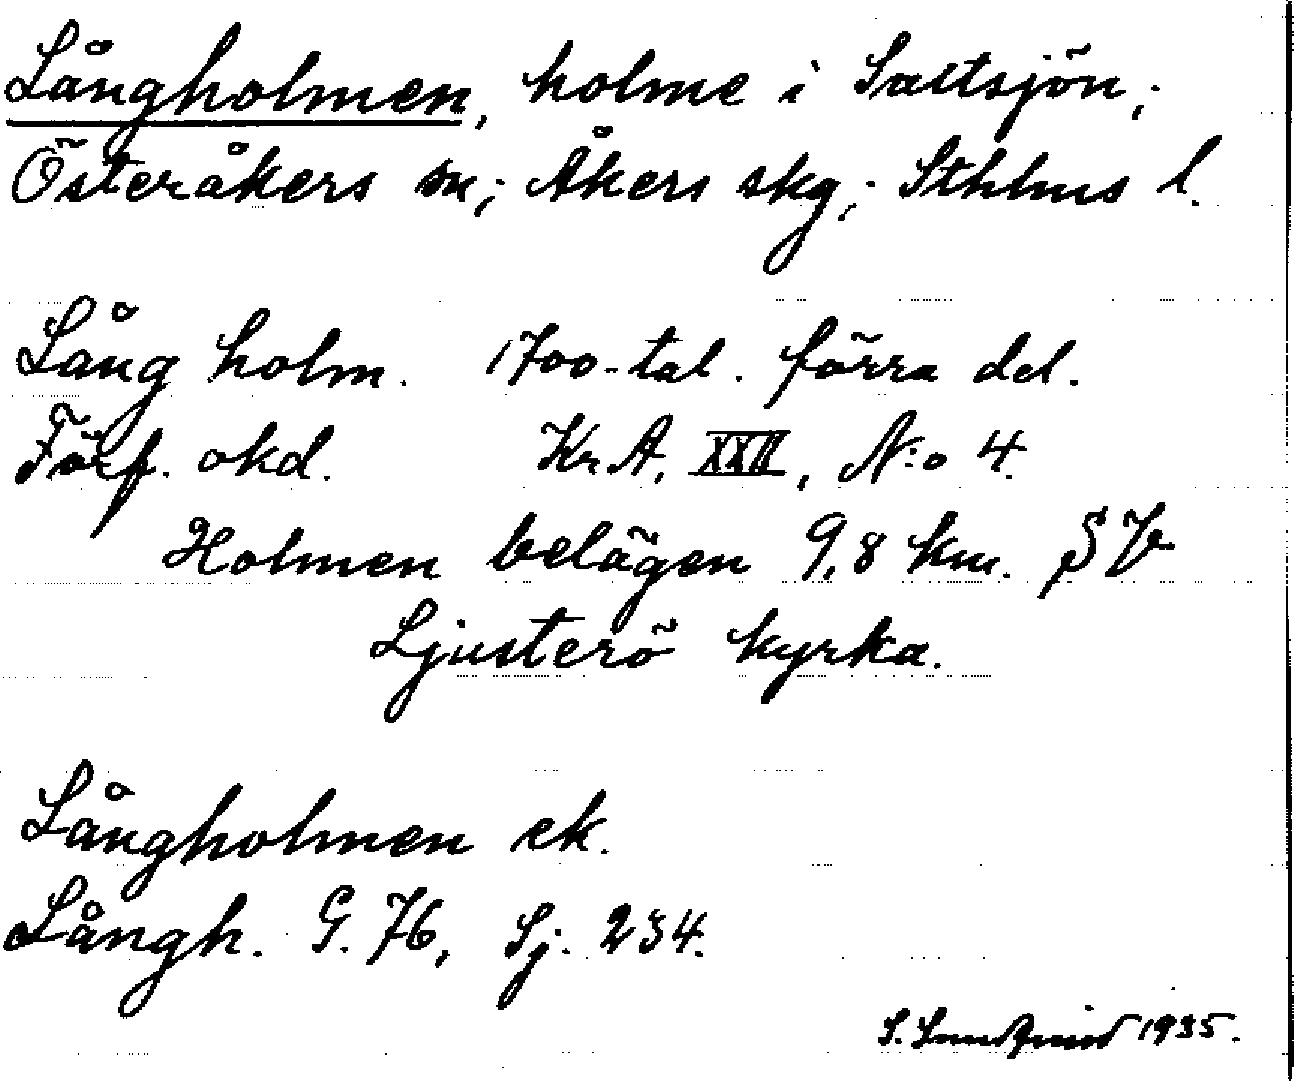 Långholmen, holme i Saltsjön,;
Österåkers sn; Åkers skg; Sthlms l.
Lång holm. 1700-tal. förra del.
Förf. okd. Kr. A. XXII, N:o 4.
Holmen belägen 9,8 km. SV
Ljusterö kyrka.
Långholmen ek.
Långh. G. 76, Sj. 234.
S. Lundqvist 1935.